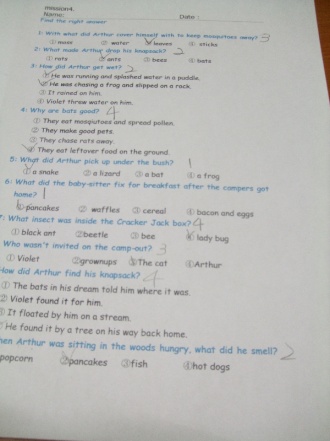 mission4.
Name: Date :
Find the right answer
1: With what did Arthur cover himself with to keep mosquitoes away? 3
① moss ② water ③ leaves ④ sticks
2: What made Arthur drop his knapsack? 2
① rats ② ants ③ bees ④ bats
3: How did Arthur get wet? 2
① He was running and splashed water in a puddle.
② He was chasing a frog and slipped on a rock.
③ It rained on him.
④ Violet threw water on him.
4: Why are bats good? 4
① They eat mosquitoes and spread pollen.
② They make good pets.
③ They chase rats away.
④ They eat leftover food on the ground.
5: What did Arthur pick up under the bush? 1
① a snake ② a lizard ③ a bat ④ a frog
6: What did the baby-sitter fix for breakfast after the campers got
home? 1
① pancakes ② waffles ③ cereal ④ bacon and eggs
7: What insect was inside the Cracker Jack box? 4
① black ant ②beetle ③ bee ④ lady bug
Who wasn't invited on the camp-out? 3
① Violet ②grownups ③The cat ④Arthur
How did Arthur find his knapsack? 4
① The bats in his dream told him where it was.
② Violet found it for him.
③ It floated by him on a stream.
He found it by a tree on his way back home.
hen Arthur was sitting in the woods hungry, what did he smell? 2
popcorn ②pancakes ③fish ④hot dogs